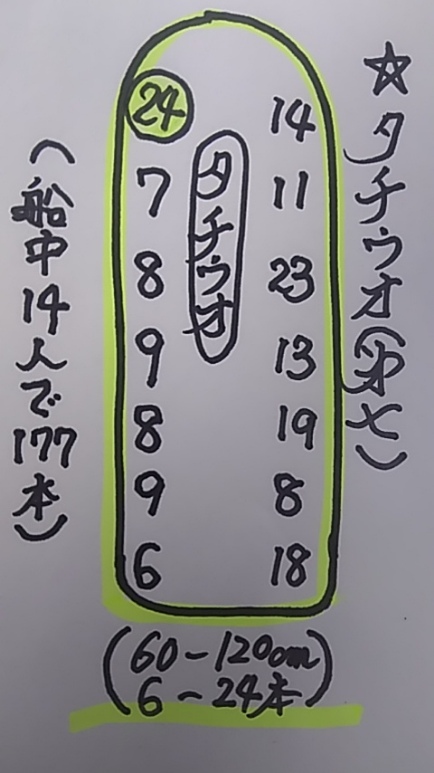 ☆タチウオ(㐧七)
タチウオ
24 14
7 11
8 23
9 13
8 19
9 8
6 18
(60-120cm
6-24本)
(船中14人で177本)